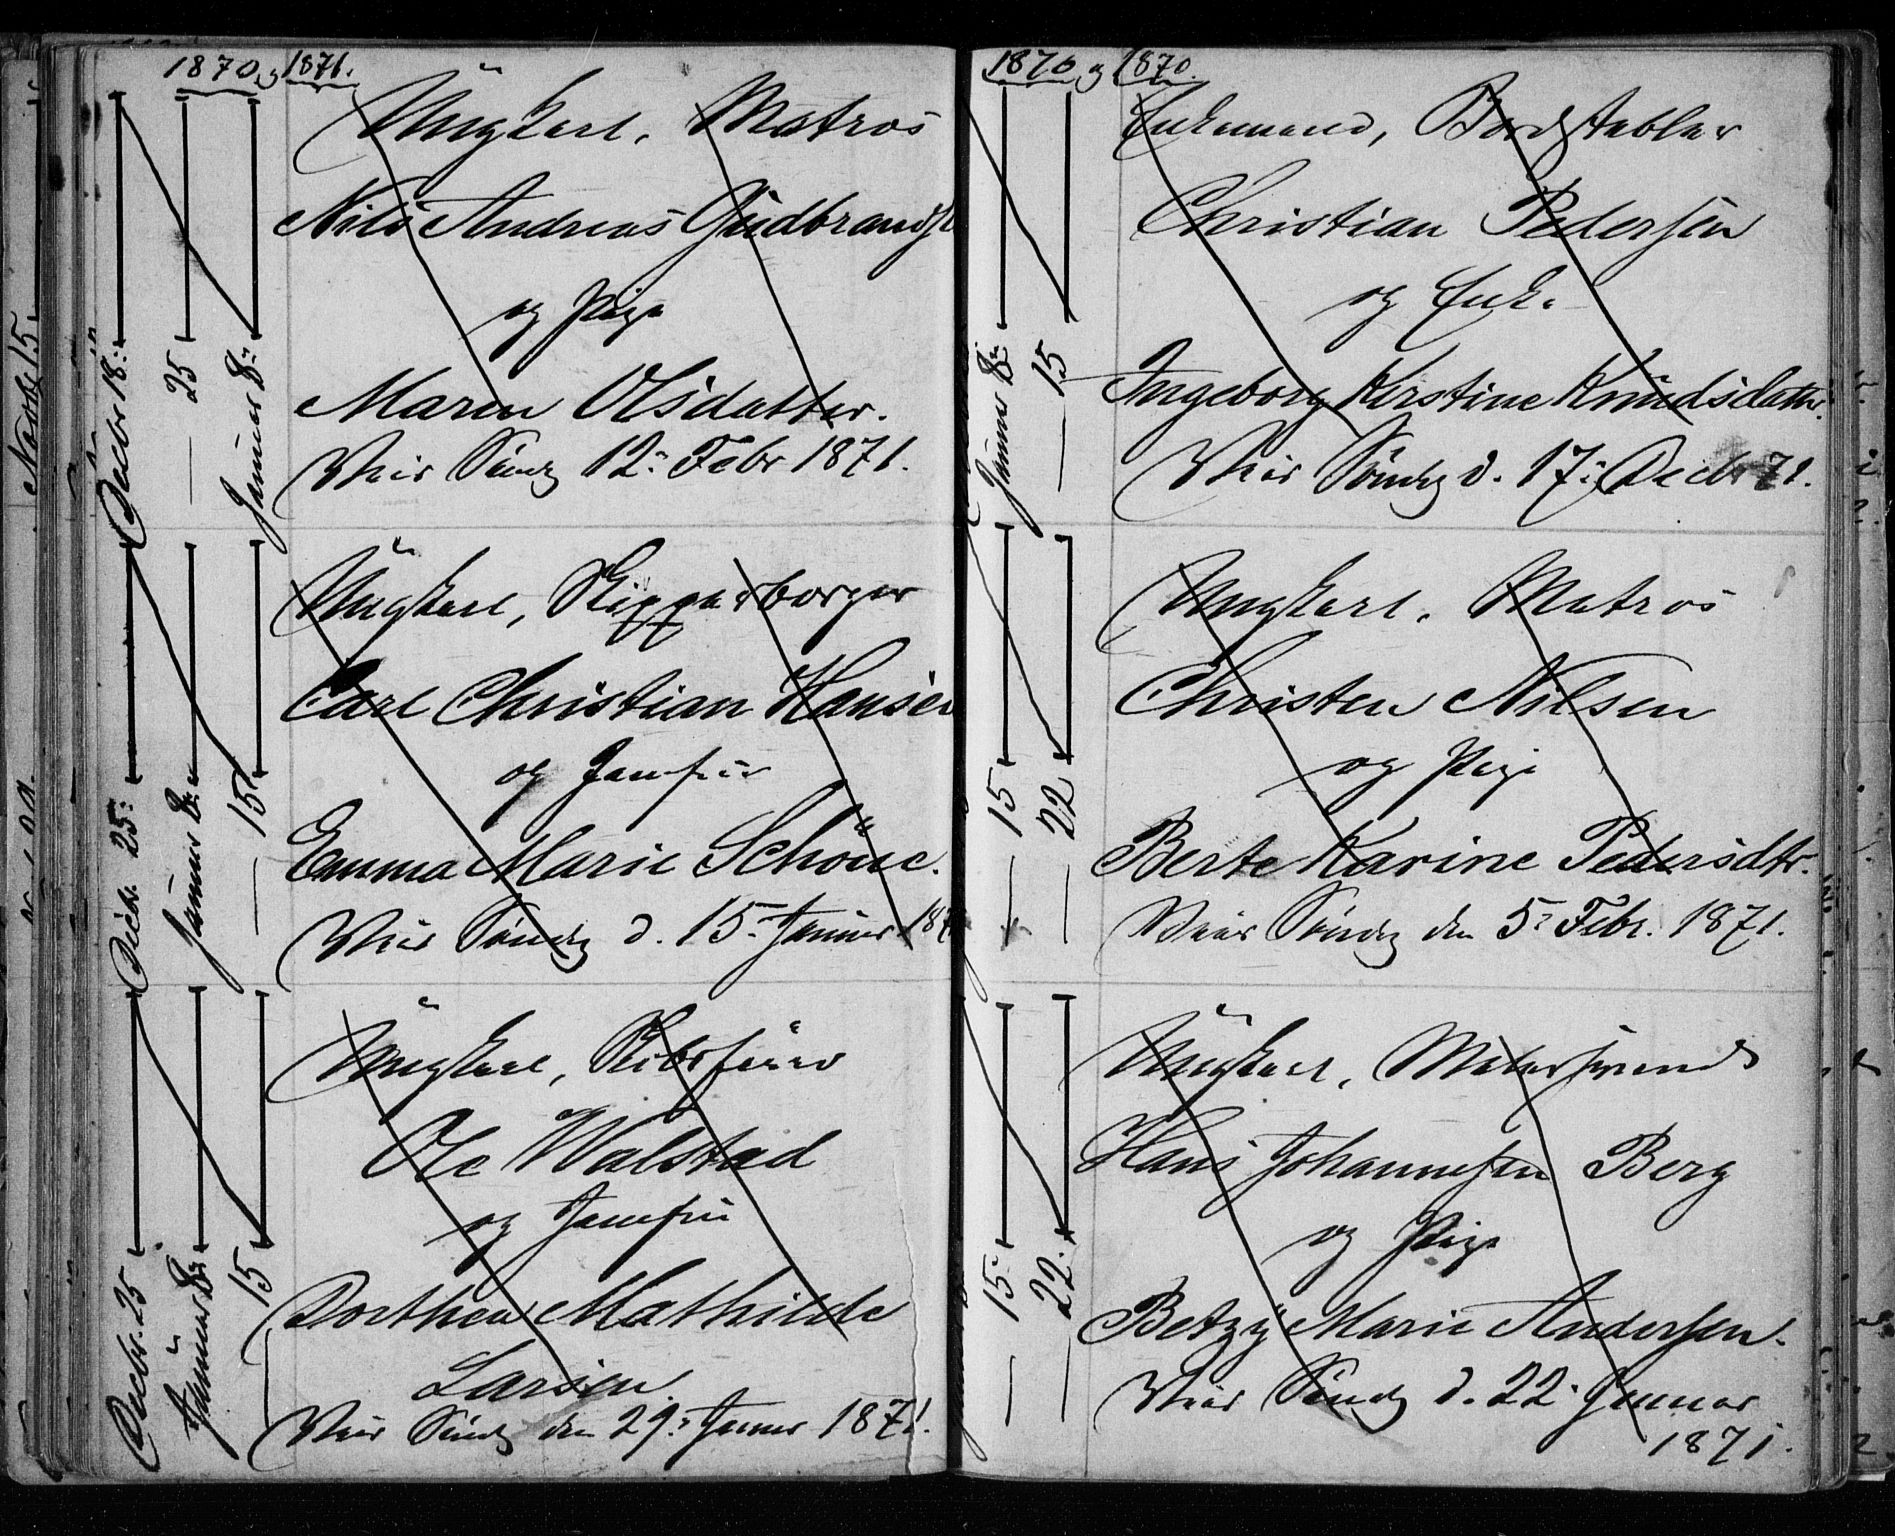 1870 og 1871.
Decbr 18:
25
Januar 8:
Ungkarl, Matros
Nils Andreas Gudbrands
og Pige
Maren Olsdatter.
Viet Søndg 12: Febr 1871.
Decbr. 25:
Januar 8:
15
Ungkarl, Skipperborger
Carl Christian Hansen
og Jomfru
Emma Marie Schöne.
Viet Søndg d. 15: Januar 187
Decbr. 25
Januar 8:
15
Ungkarl,
Ole Walstad
og Jomfru
Dorthea Mathilde
Larsen.
Viet Søndg den 29: Januar 1871.
1870 og 1870.
Januar 8:
15
Enkemand, Bordstabler
Christian Pedersen
og Enke
Ingeborg Kirstine Knudsdatter.
Viet Søndg d. 17: Decbr 71.
15
22
Ungkarl, Matros
Christen Nilsen
og Pige
Berte Karine Pedersdtr.
Viet Søndg den 5: Febr. 1871.
15
22.
Ungkarl, Malersvend
Hans Johannesen Berg
og Pige
Betzy Marie Andersen.
Viet Søndg d. 22: Januar
1871.